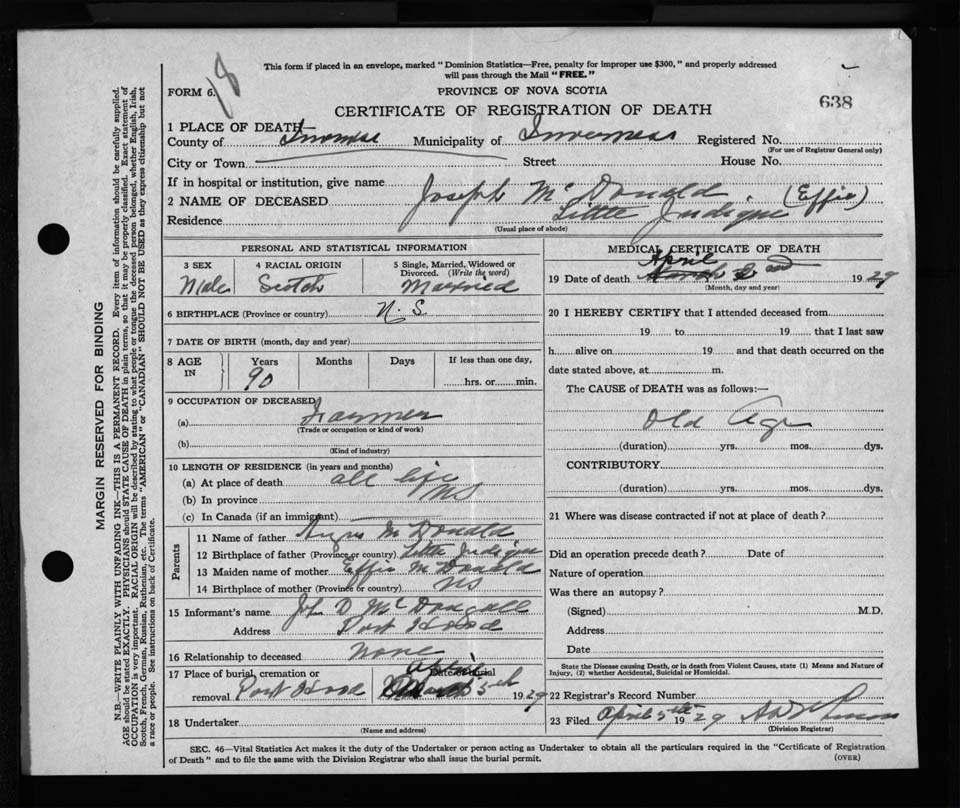 This form if placed in an envelope, marked "Dominion Statistics—Free, penalty for improper use $300," and properly addressed
will pass through the Mail "FREE."
FORM 6.
18
PROVINCE OF NOVA SCOTIA
CERTIFICATE OF REGISTRATION OF DEATH
638
1 PLACE OF DEATH
County of Inverness Municipality of Inverness Registered No.
(For use of Registrar General only)
City or Town Street House No.
If in hospital or institution, give name
2 NAME OF DECEASED Joseph McDonald (Effie)
Residence Little Judique
(Usual place of abode)
PERSONAL AND STATISTICAL INFORMATION
3 SEX 4 RACIAL ORIGIN 5 Single, Married, Widowed or Divorced. (Write the word)
Male Scotch Married
6 BIRTHPLACE (Province or country) N. S.
7 DATE OF BIRTH (month, day and year)
8 AGE IN Years Months Days If less than one day,
90 hrs. or min.
9 OCCUPATION OF DECEASED
(a) Farmer
(Trade or occupation or kind of work)
(b)
(Kind of industry)
10 LENGTH OF RESIDENCE (in years and months)
(a) At place of death all life
(b) In province NS
(c) In Canada (if an immigrant)
Parents
11 Name of father Angus McDonald
12 Birthplace of father (Province or country) Little Judique
13 Maiden name of mother Effie McDonald
14 Birthplace of mother (Province or country) NS
15 Informant's name Jhn D McDougall
Address Port Hood
16 Relationship to deceased none
17 Place of burial, cremation or Date of burial
removal Port Hood April 5th 1929
18 Undertaker
(Name and address)
MEDICAL CERTIFICATE OF DEATH
19 Date of death April 2nd 1929
(Month, day and year)
20 I HEREBY CERTIFY that I attended deceased from
19 to 19 that I last saw
h alive on 19 and that death occurred on the
date stated above, at m.
The CAUSE of DEATH was as follows:—
Old Age
(duration) yrs. mos. dys.
CONTRIBUTORY
(duration) yrs. mos. dys.
21 Where was disease contracted if not at place of death?
Did an operation precede death? Date of
Nature of operation
Was there an autopsy?
(Signed) M.D.
Address
Date
State the Disease causing Death, or in death from Violent Causes, state (1) Means and Nature of
Injury, (2) whether Accidental, Suicidal or Homicidal.
22 Registrar's Record Number
23 Filed April 5th 1929
(Division Registrar)
SEC. 46—Vital Statistics Act makes it the duty of the Undertaker or person acting as Undertaker to obtain all the particulars required in the "Certificate of Registration
of Death" and to file the same with the Division Registrar who shall issue the burial permit. (OVER)
MARGIN RESERVED FOR BINDING
N.B.—WRITE PLAINLY WITH UNFADING INK—THIS IS A PERMANENT RECORD. Every item of information should be carefully supplied.
AGE should be stated EXACTLY. PHYSICIANS should STATE CAUSE OF DEATH in plain terms, so that it may be properly classified. Exact statement of
OCCUPATION is very important. RACIAL ORIGIN will be described by stating to what people or tongue the deceased person belonged, whether English, Irish,
Scotch, French, German, Russian, Ruthenian, etc. The terms "AMERICAN" or "CANADIAN" SHOULD NOT BE USED as they express citizenship but not
a race or people. See instructions on back of Certificate.